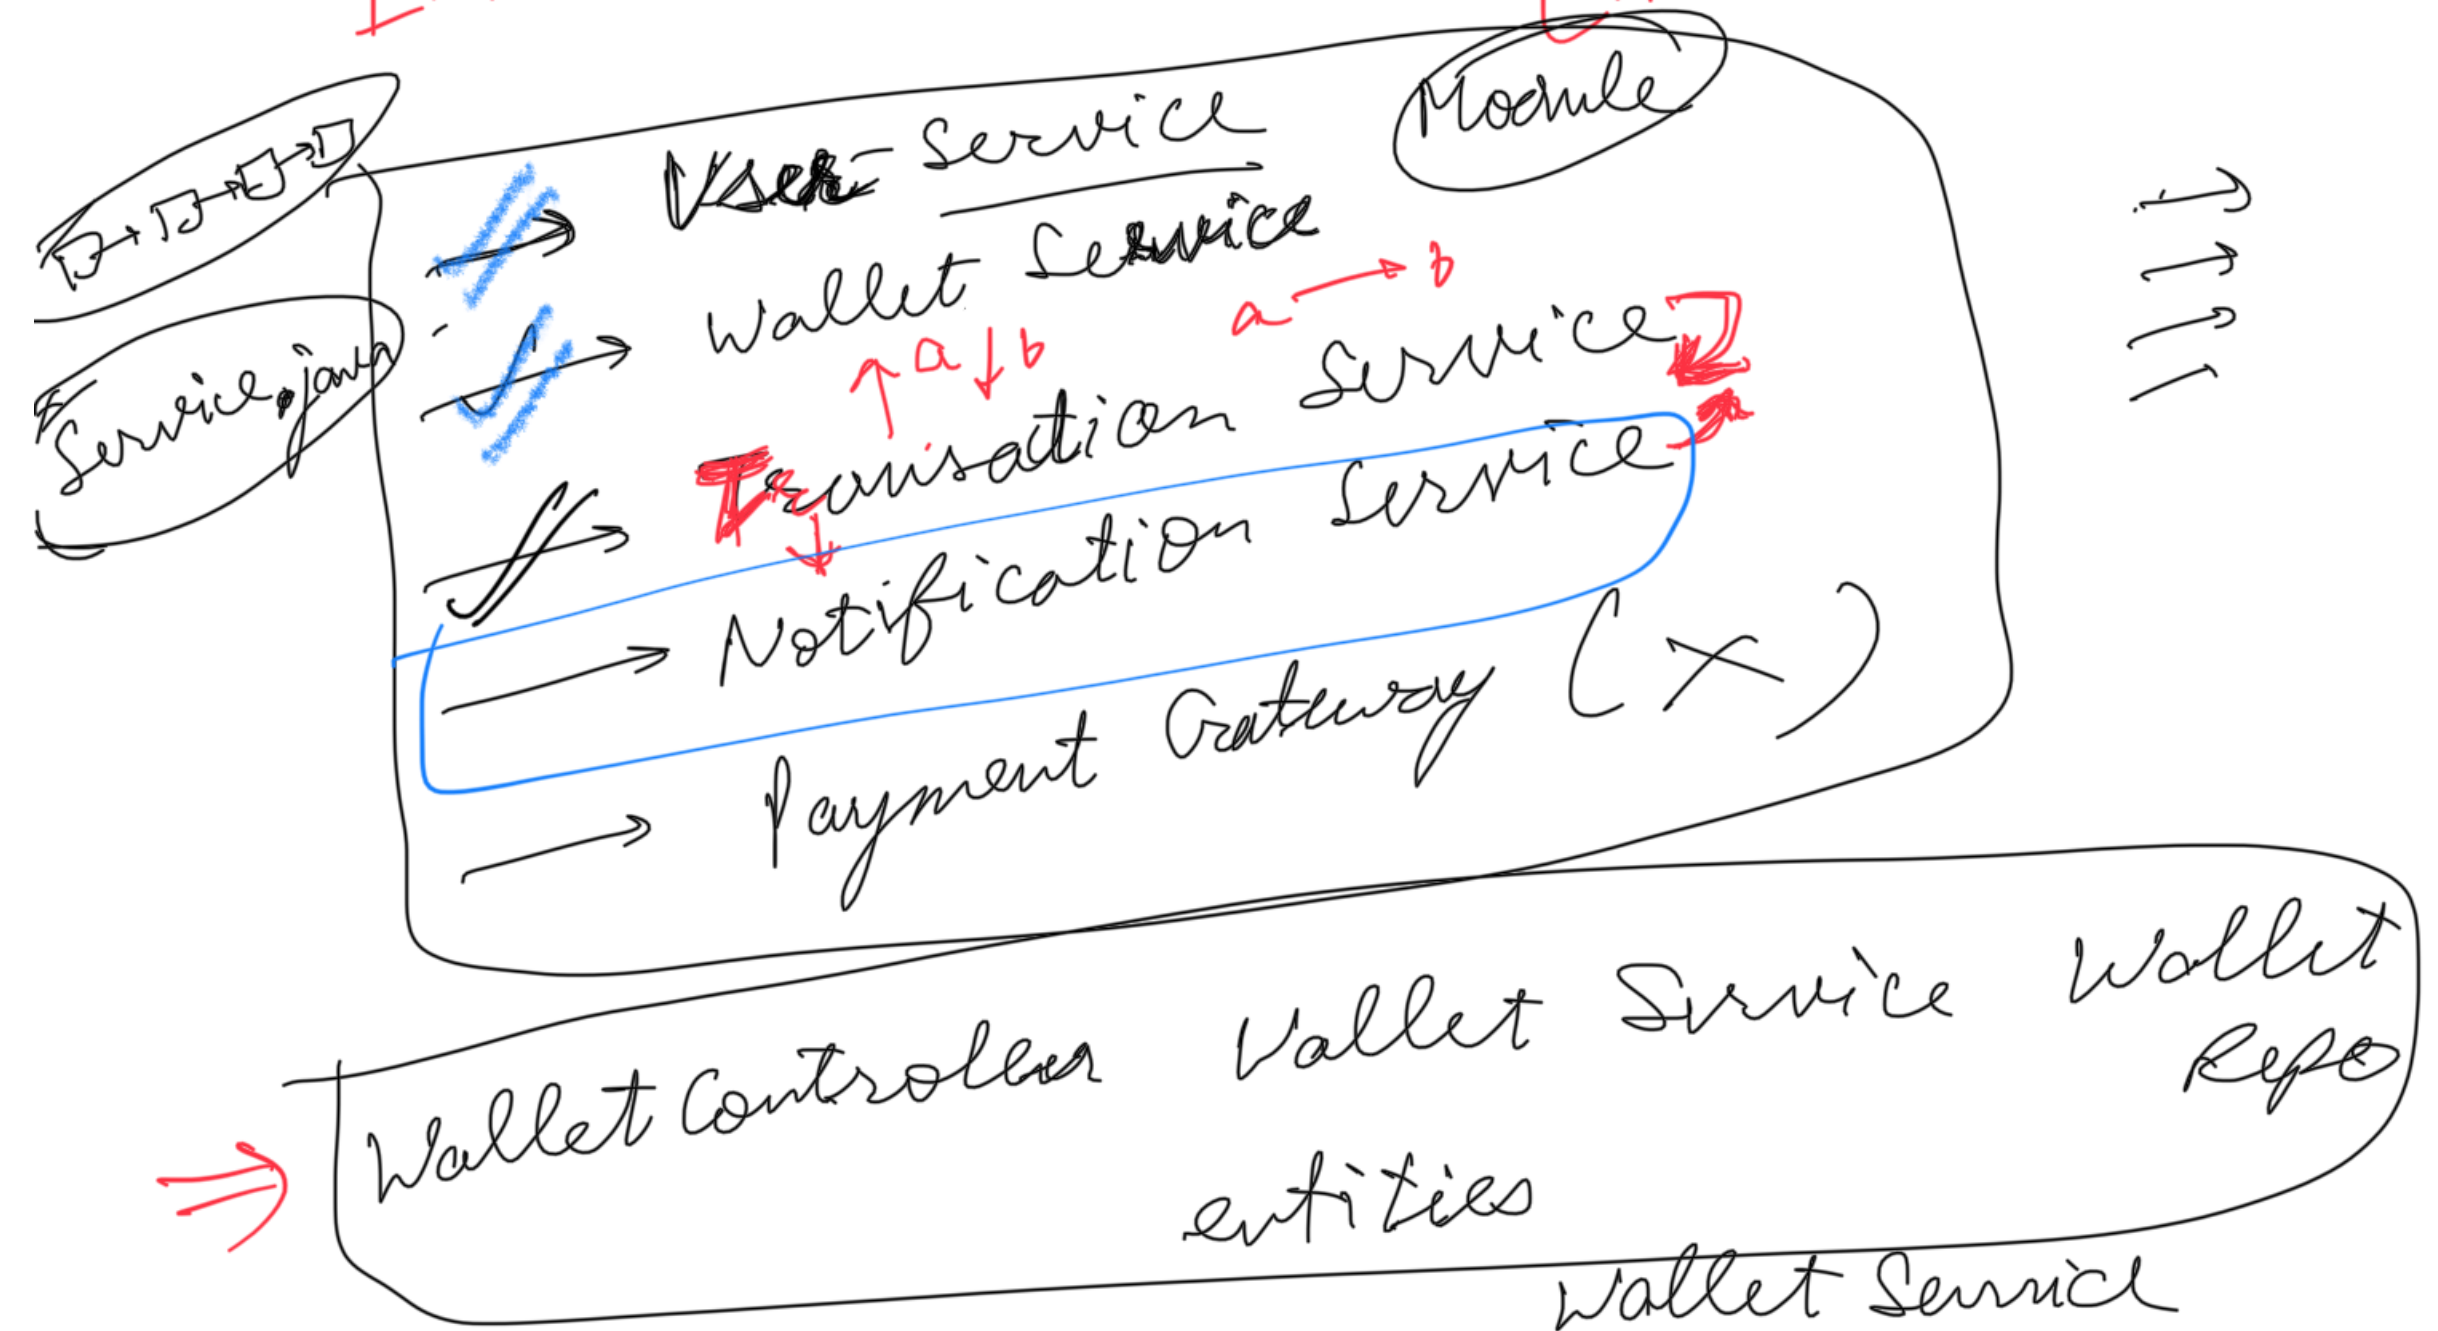 Module
User-Service
Wallet Service
a → b
a b
Service.java
Transation Service
Notification Service
Payment Gateway (X)
Wallet Controller Wallet Service Wallet
Repo
entities
Wallet Service